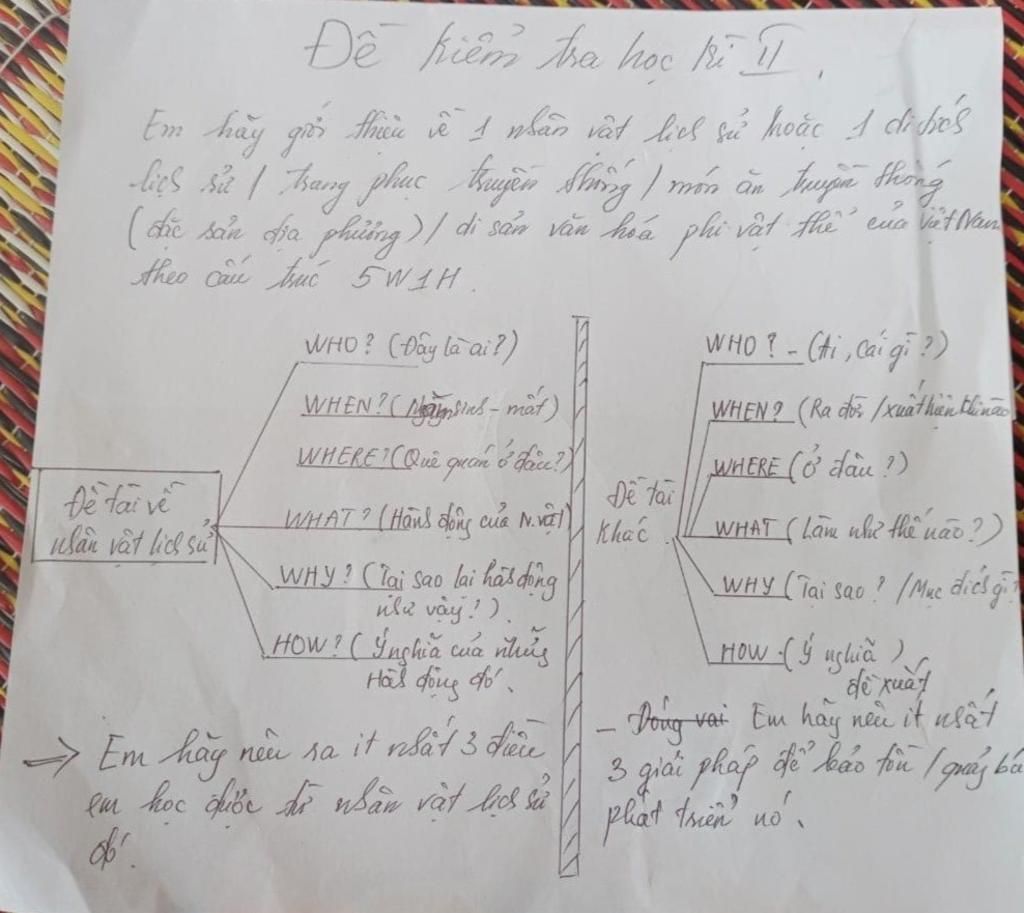 Đề kiểm tra học kì II.
Em hãy giới thiệu về 1 nhân vật lịch sử hoặc 1 di tích
lịch sử / trang phục truyền thống / món ăn truyền thống
(đặc sản địa phương) / di sản văn hóa phi vật thể của Việt Nam
theo cấu trúc 5W1H.
Đề tài về
nhân vật lịch sử
WHO? (Đây là ai?)
WHEN? (Năm sinh - mất)
WHERE? (Quê quán ở đâu?)
WHAT? (Hành động của N.vật)
WHY? (Tại sao lại hành động
như vậy?)
HOW? (Ý nghĩa của những
Hành động đó.
→ Em hãy nêu ra ít nhất 3 điều
em học được từ nhân vật lịch sử
đó.
Đề tài
khác
WHO? - (Ai, cái gì?)
WHEN? (Ra đời / xuất hiện khi nào
WHERE (Ở đâu?)
WHAT (Làm như thế nào?)
WHY (Tại sao? / Mục đích gì?
HOW. (Ý nghĩa)
đề xuất
- Đóng vai Em hãy nêu ít nhất
3 giải pháp để bảo tồn / quảng bá
phát triển nó.